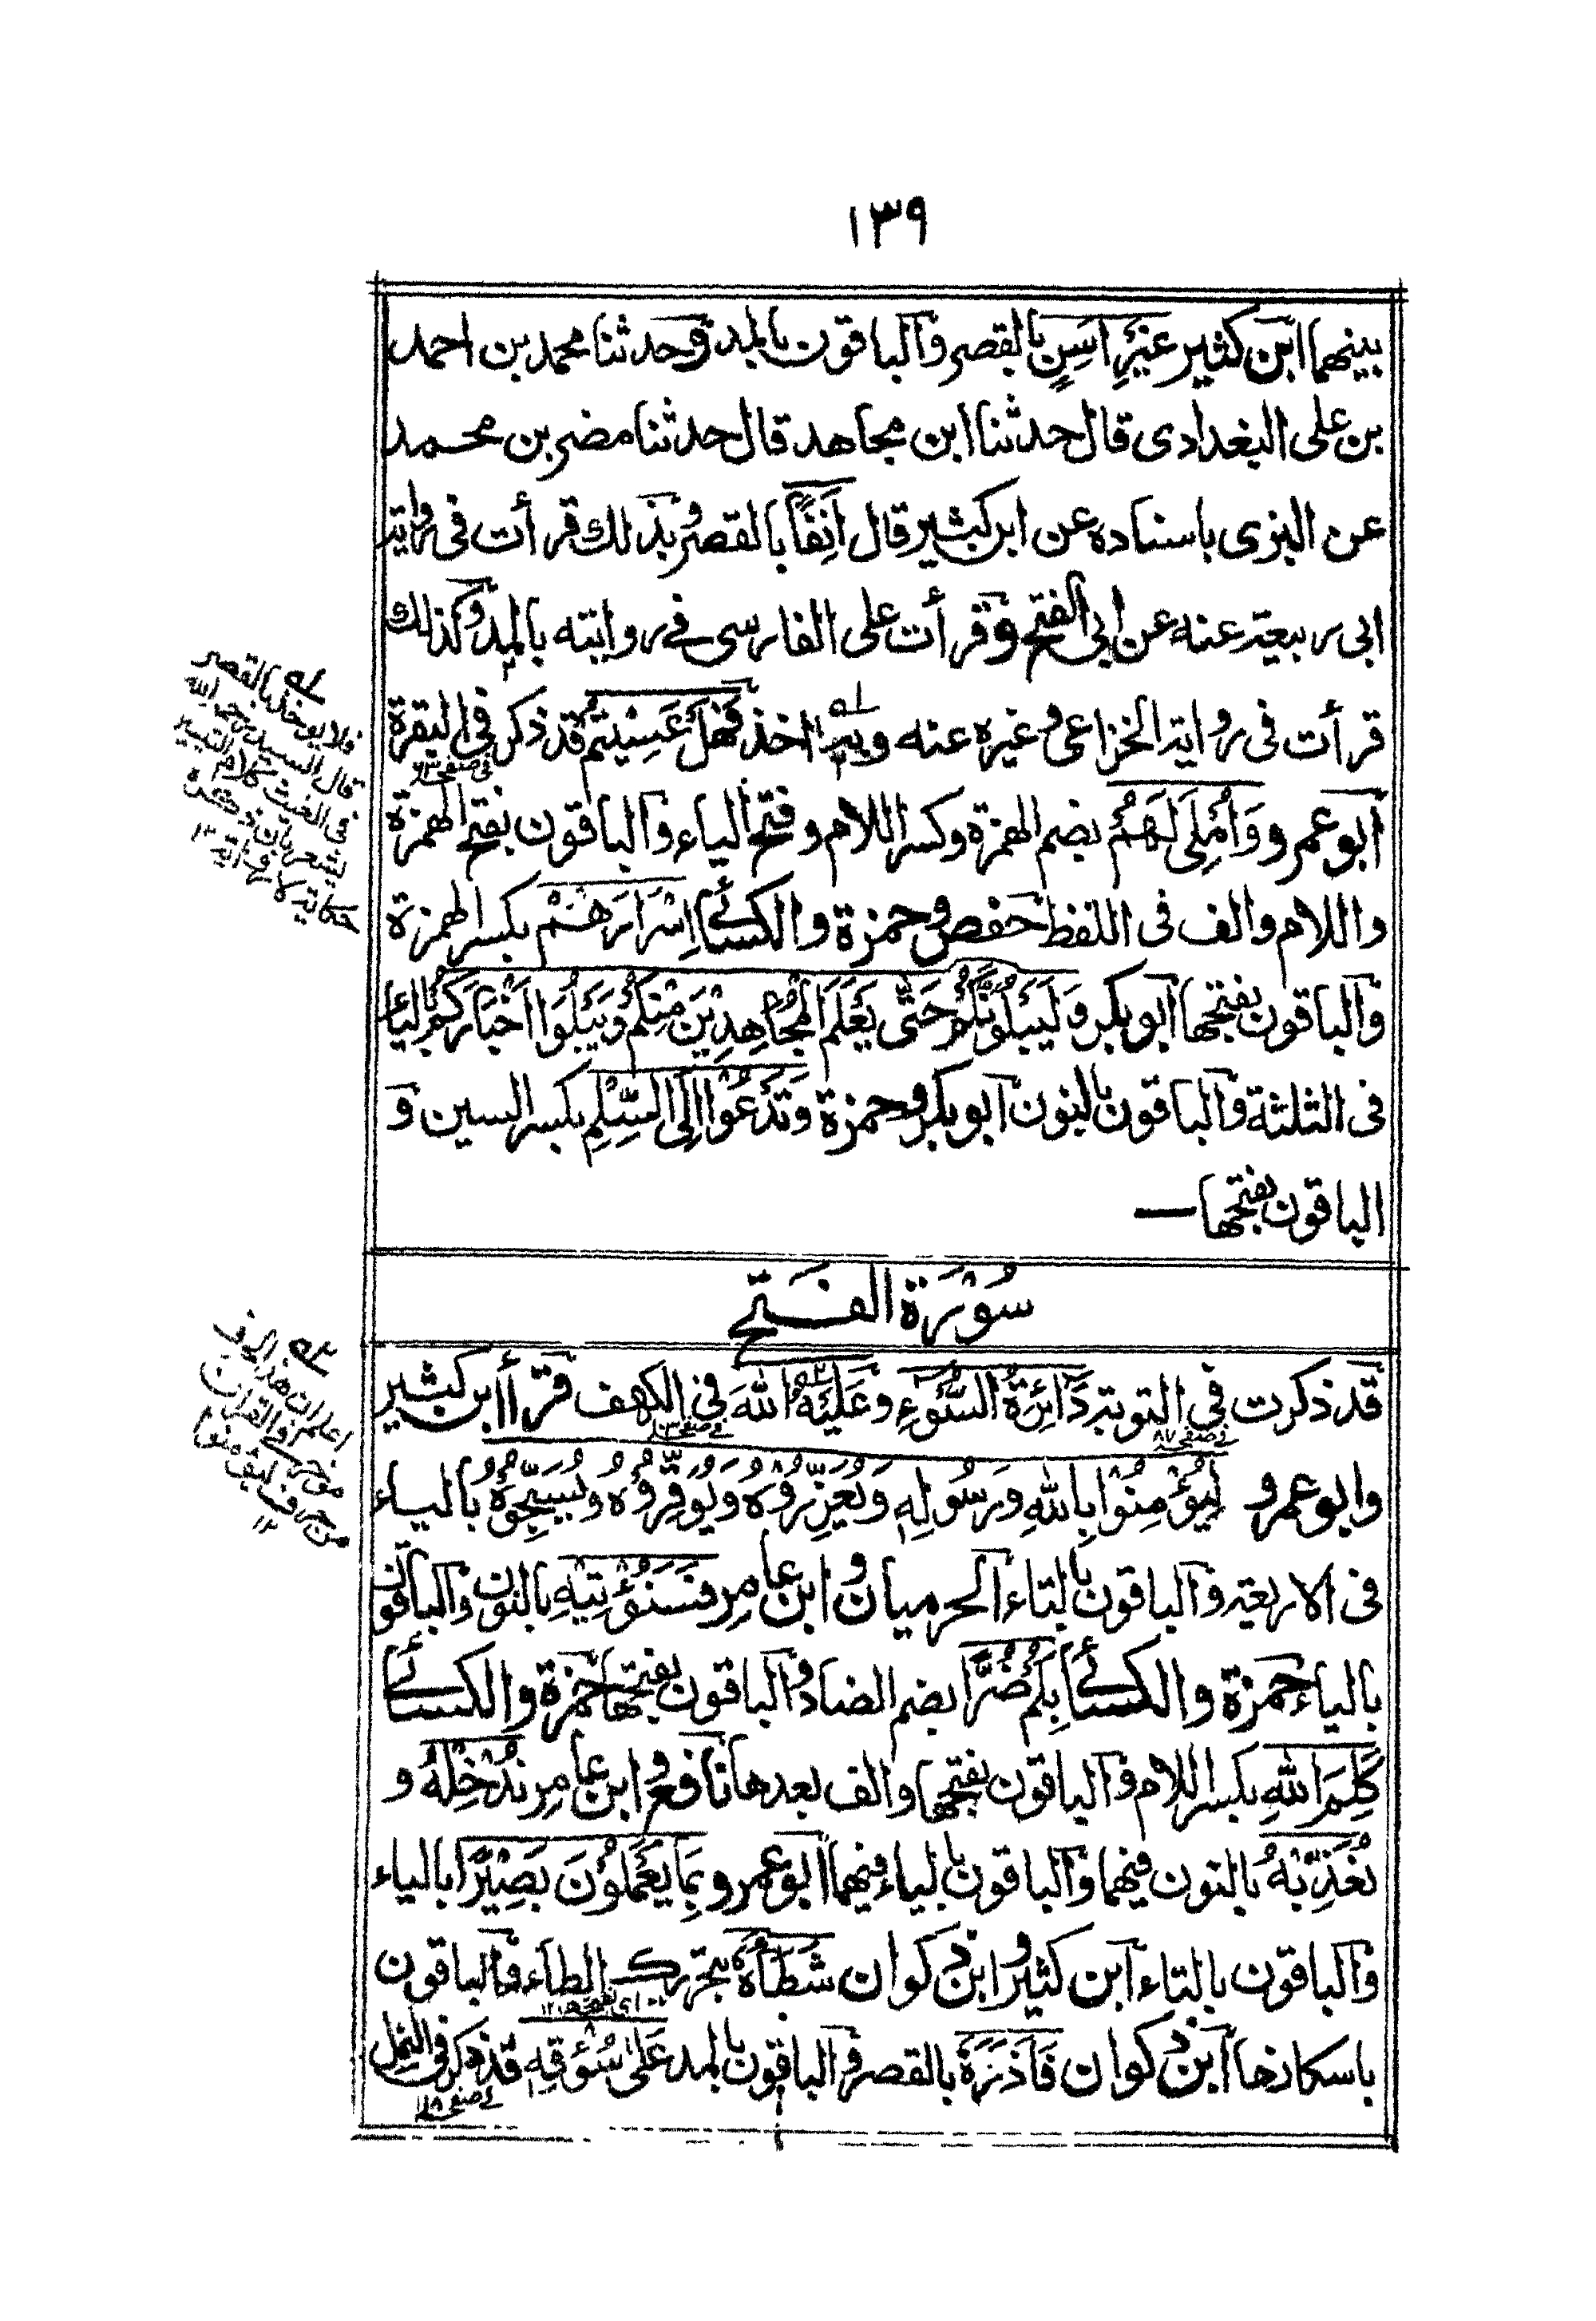 ١٣٩
بينهما ابن كثير غَيْرِ اٰسِنٍ بالقصر والباقون بالمد وحدثنا محمد بن احمد
بن على البغدادى قال حدثنا ابن مجاهد قال حدثنا مضر بن محمد
عن البزى باسناده عن ابن كثير قال اَنِفًا بالقصر وبذلك قرأت فى رواية
ابى ربيعة عنه عن ابى الفتح وقرأت على الفارسى فى روايته بالمد وكذلك
قرأت فى رواية الخزاعى وغيره عنه وبه اخذ فَهَلْ عَسَيْتُمْ قد ذكر فى البقرة
ابو عمرو وَاُمْلِىَ لَهُمْ بضم الهمزة وكسر اللام وفتح الياء والباقون بفتح الهمزة
واللام والف فى اللفظ حفص وحمزة والكسائى اِسْرَارَهُمْ بكسر الهمزة
والباقون بفتحها ابو بكر وَلَيَبْلُوَنَّكُمْ حَتّٰى يَعْلَمَ الْمُجَاهِدِيْنَ مِنْكُمْ وَيَبْلُوَا اَخْبَارَكُمْ بالياء
فى الثلثة والباقون بالنون ابو بكر وحمزة وَتَدْعُوْا اِلَى السِّلْمِ بكسر السين و
الباقون بفتحها —
سُوْرَة الفَتح
قد ذكرت فى التوبة دَائِرَةُ السَّوْءِ وعَلَيْهُ اللهَ فى الكهف قرأ ابن كثير
وابو عمرو لِيُؤْمِنُوْا بِاللهِ وَرَسُوْلِهٖ وَيُعَزِّرُوْهُ وَيُوَقِّرُوْهُ وَيُسَبِّحُوْهُ بالياء
فى الاربعة والباقون بالتاء الحرميان وابن عامر فَسَنُؤْتِيْهِ بالنون والباقون
بالياء حمزة والكسائى بِكُمْ ضُرًّا بضم الضاد والباقون بفتحها حمزة والكسائى
كَلِمَ اللهِ بكسر اللام والباقون بفتحها والف بعدها نافع وابن عامر نُدْخِلْهُ و
نُعَذِّبْهُ بالنون فيهما والباقون بالياء فيهما ابو عمرو بِمَا يَعْمَلُوْنَ بَصِيْرًا بالياء
والباقون بالتاء ابن كثير وابن ذكوان شَطَأَهُ بتحريك الطاء والباقون
باسكانها ابن ذكوان فَأَزَرَهُ بالقصر والباقون بالمد عَلٰى سُوْقِهٖ قد ذكر فى النمل
فلا يوخذ بالقصر
قال السيد رحمه الله
فى الغيث كلام التيسير
يشعر بان ذكره
حكاية لا رواية ١٢